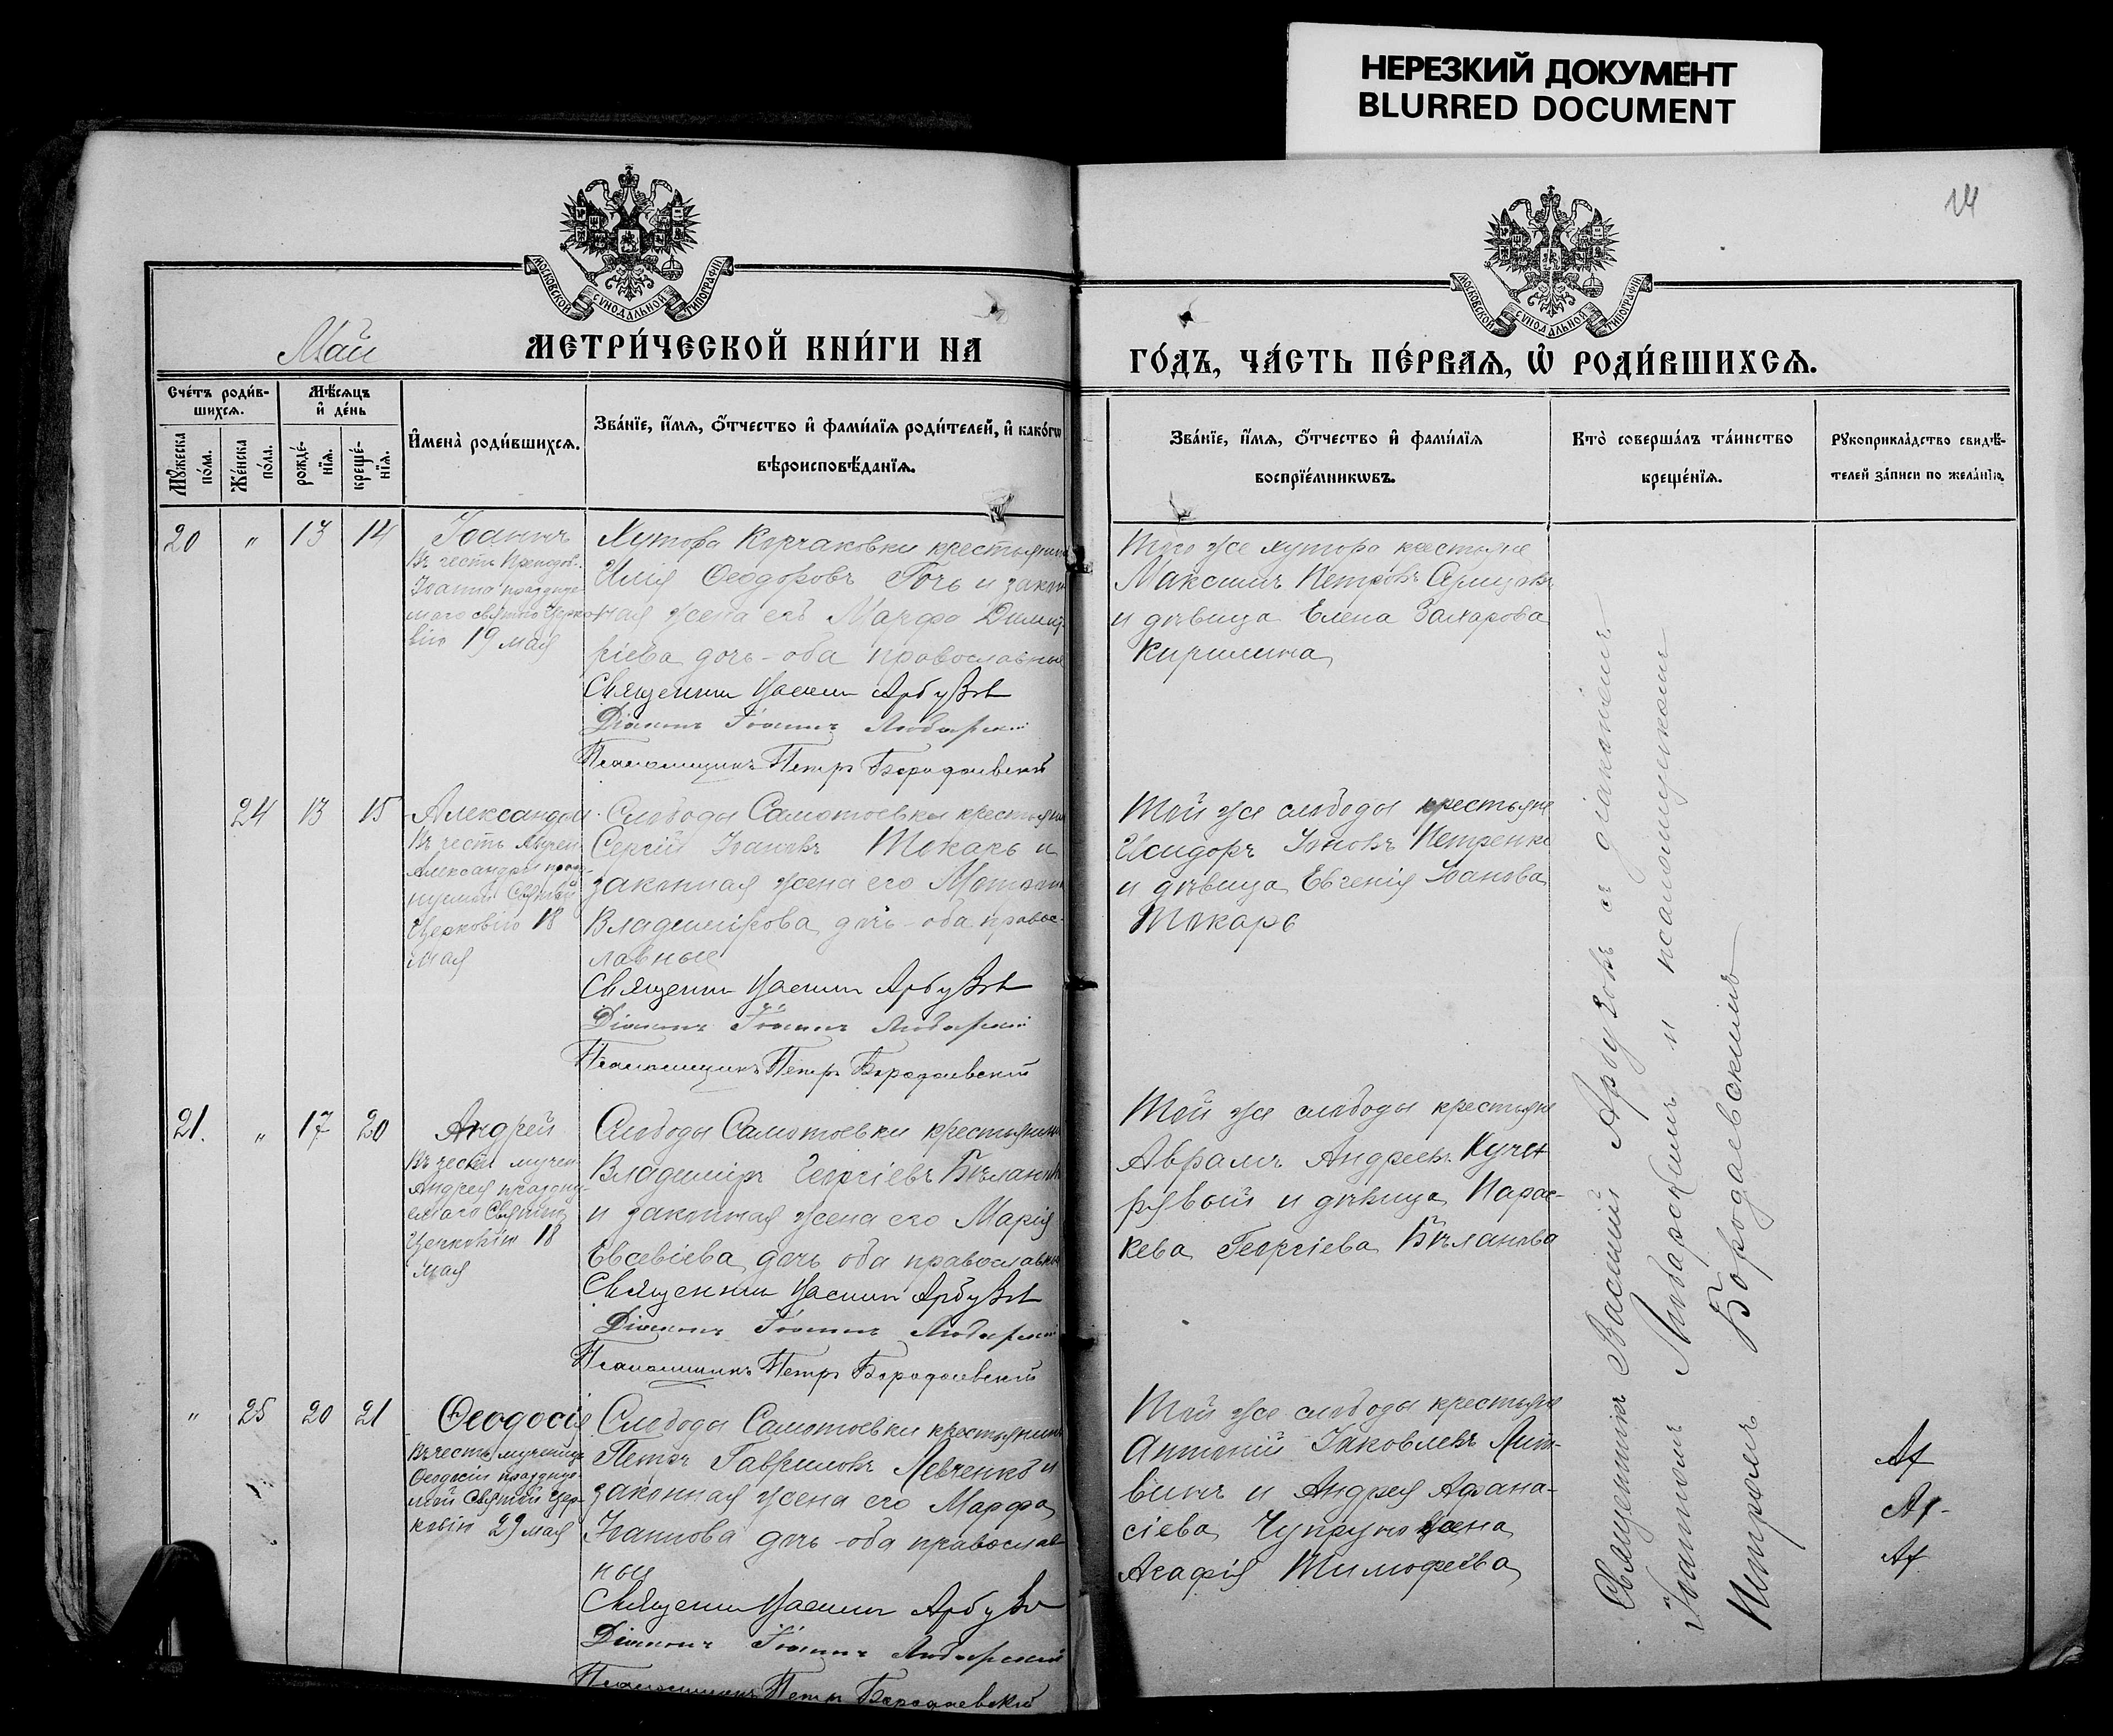 НЕРЕЗКИЙ ДОКУМЕНТ
BLURRED DOCUMENT
14
МОСКОВСКОЙ СѴНОДАЛЬНОЙ ТИПОГРАФІИ
МОСКОВСКОЙ СѴНОДАЛЬНОЙ ТИПОГРАФІИ
Май
МЕТРИ́ЧЕСКОЙ КНИ́ГИ НА
ГО́ДЪ, ЧА́СТЬ ПЕ́РВАѦ, Ѡ҆ РОДИ́ВШИХСѦ.
Сче́тъ роди́в-
шихсѧ.
Мꙋ́жеска
по́ла.
Же́нска
по́ла.
Мѣ́сѧцъ
и҆ де́нь
рожде́-
нїѧ.
креще́-
нїѧ.
И҆мена̀ роди́вшихсѧ.
Зва́нїе, и҆́мѧ, ѻ҆́тчество и҆ фами́лїѧ роди́телей, и҆ како́гѡ
вѣроисповѣ́данїѧ.
Зва́нїе, и҆́мѧ, ѻ҆́тчество и҆ фами́лїѧ
воспрїе́мникѡвъ.
Кто̀ соверша́лъ та́инство
креще́нїѧ.
Рꙋкоприкла́дство свидѣ́-
телей за́писи по жела́нїю.
20 " 13 14
Іоаннъ
Въ честь Преподоб.
Іоанна празднуе-
маго святою Церко-
вію 19 мая
Хутора Корчаковки крестьянинъ
Илія Ѳеодоровъ Гочь и закон-
ная жена его Марфа Димит-
ріева дочь - оба православные
Священникъ Василій Арбузовъ
Діаконъ Іоаннъ Любарскій
Псаломщикъ Петръ Бородаевскій
Того же хутора крестьяне
Максимъ Петровъ
и дѣвица Елена Захарова
24 13 15
Александра
Въ честь Мучен.
Александры празд-
нуемой Святой
Церковію 18
мая
Слободы Самотоевки крестьянинъ
Сергій Іоанновъ Токарь и
законная жена его
Владимірова дочь - оба правос-
лавные
Священникъ Василій Арбузовъ
Діаконъ Іоаннъ Любарскій
Псаломщикъ Петръ Бородаевскій
Той же слободы крестьяне
Исидоръ Іоновъ Петренко
и дѣвица Евгенія Іоанова
Токарь
21. " 17 20
Андрей
Въ честь мучен.
Андрея праздну-
емаго Святою
Церковію 18
мая
Слободы Самотоевки крестьянинъ
Владиміръ Георгіевъ Бѣлановъ
и законная жена его Марія
Евсевіева дочь оба православные
Священникъ Василій Арбузовъ
Діаконъ Іоаннъ Любарскій
Псаломщикъ Петръ Бородаевскій
Той же слободы крестьяне
Аврамъ Андреевъ Куче-
рявый и дѣвица Парас-
кева Георгіева Бѣланова
" 25 20 21
Ѳеодосія
Въ честь мученицы
Ѳеодосіи празднуе-
мой Святой Цер-
ковію 29 мая
Слободы Самотоевки крестьянинъ
Петръ Гавриловъ Левченко и
законная жена его Марфа
Іоаннова дочь - оба православ-
ные
Священникъ Василій Арбузовъ
Діаконъ Іоаннъ Любарскій
Псаломщикъ Петръ Бородаевскій
Той же слободы крестьяне
Антоній Іаковлевъ Лит-
винъ и Андрея Афана-
сіева Чупруно жена
Агафія Тимофеева
Священникъ Василій Арбузовъ съ діакономъ
Іоанномъ Любарскимъ и псаломщикомъ
Петромъ Бородаевскимъ